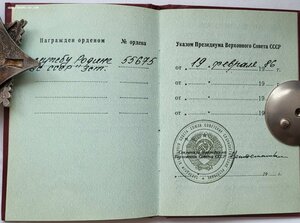 Награжден орденом
№ ордена
службу Родине
55675
СССР" 3ст.
Указом Президиума Верховного Совета СССР
от 19 февраля 86
от 19
от 19
от 19
от 19
Секретарь Президиума
Верховного Совета СССР
19 г.